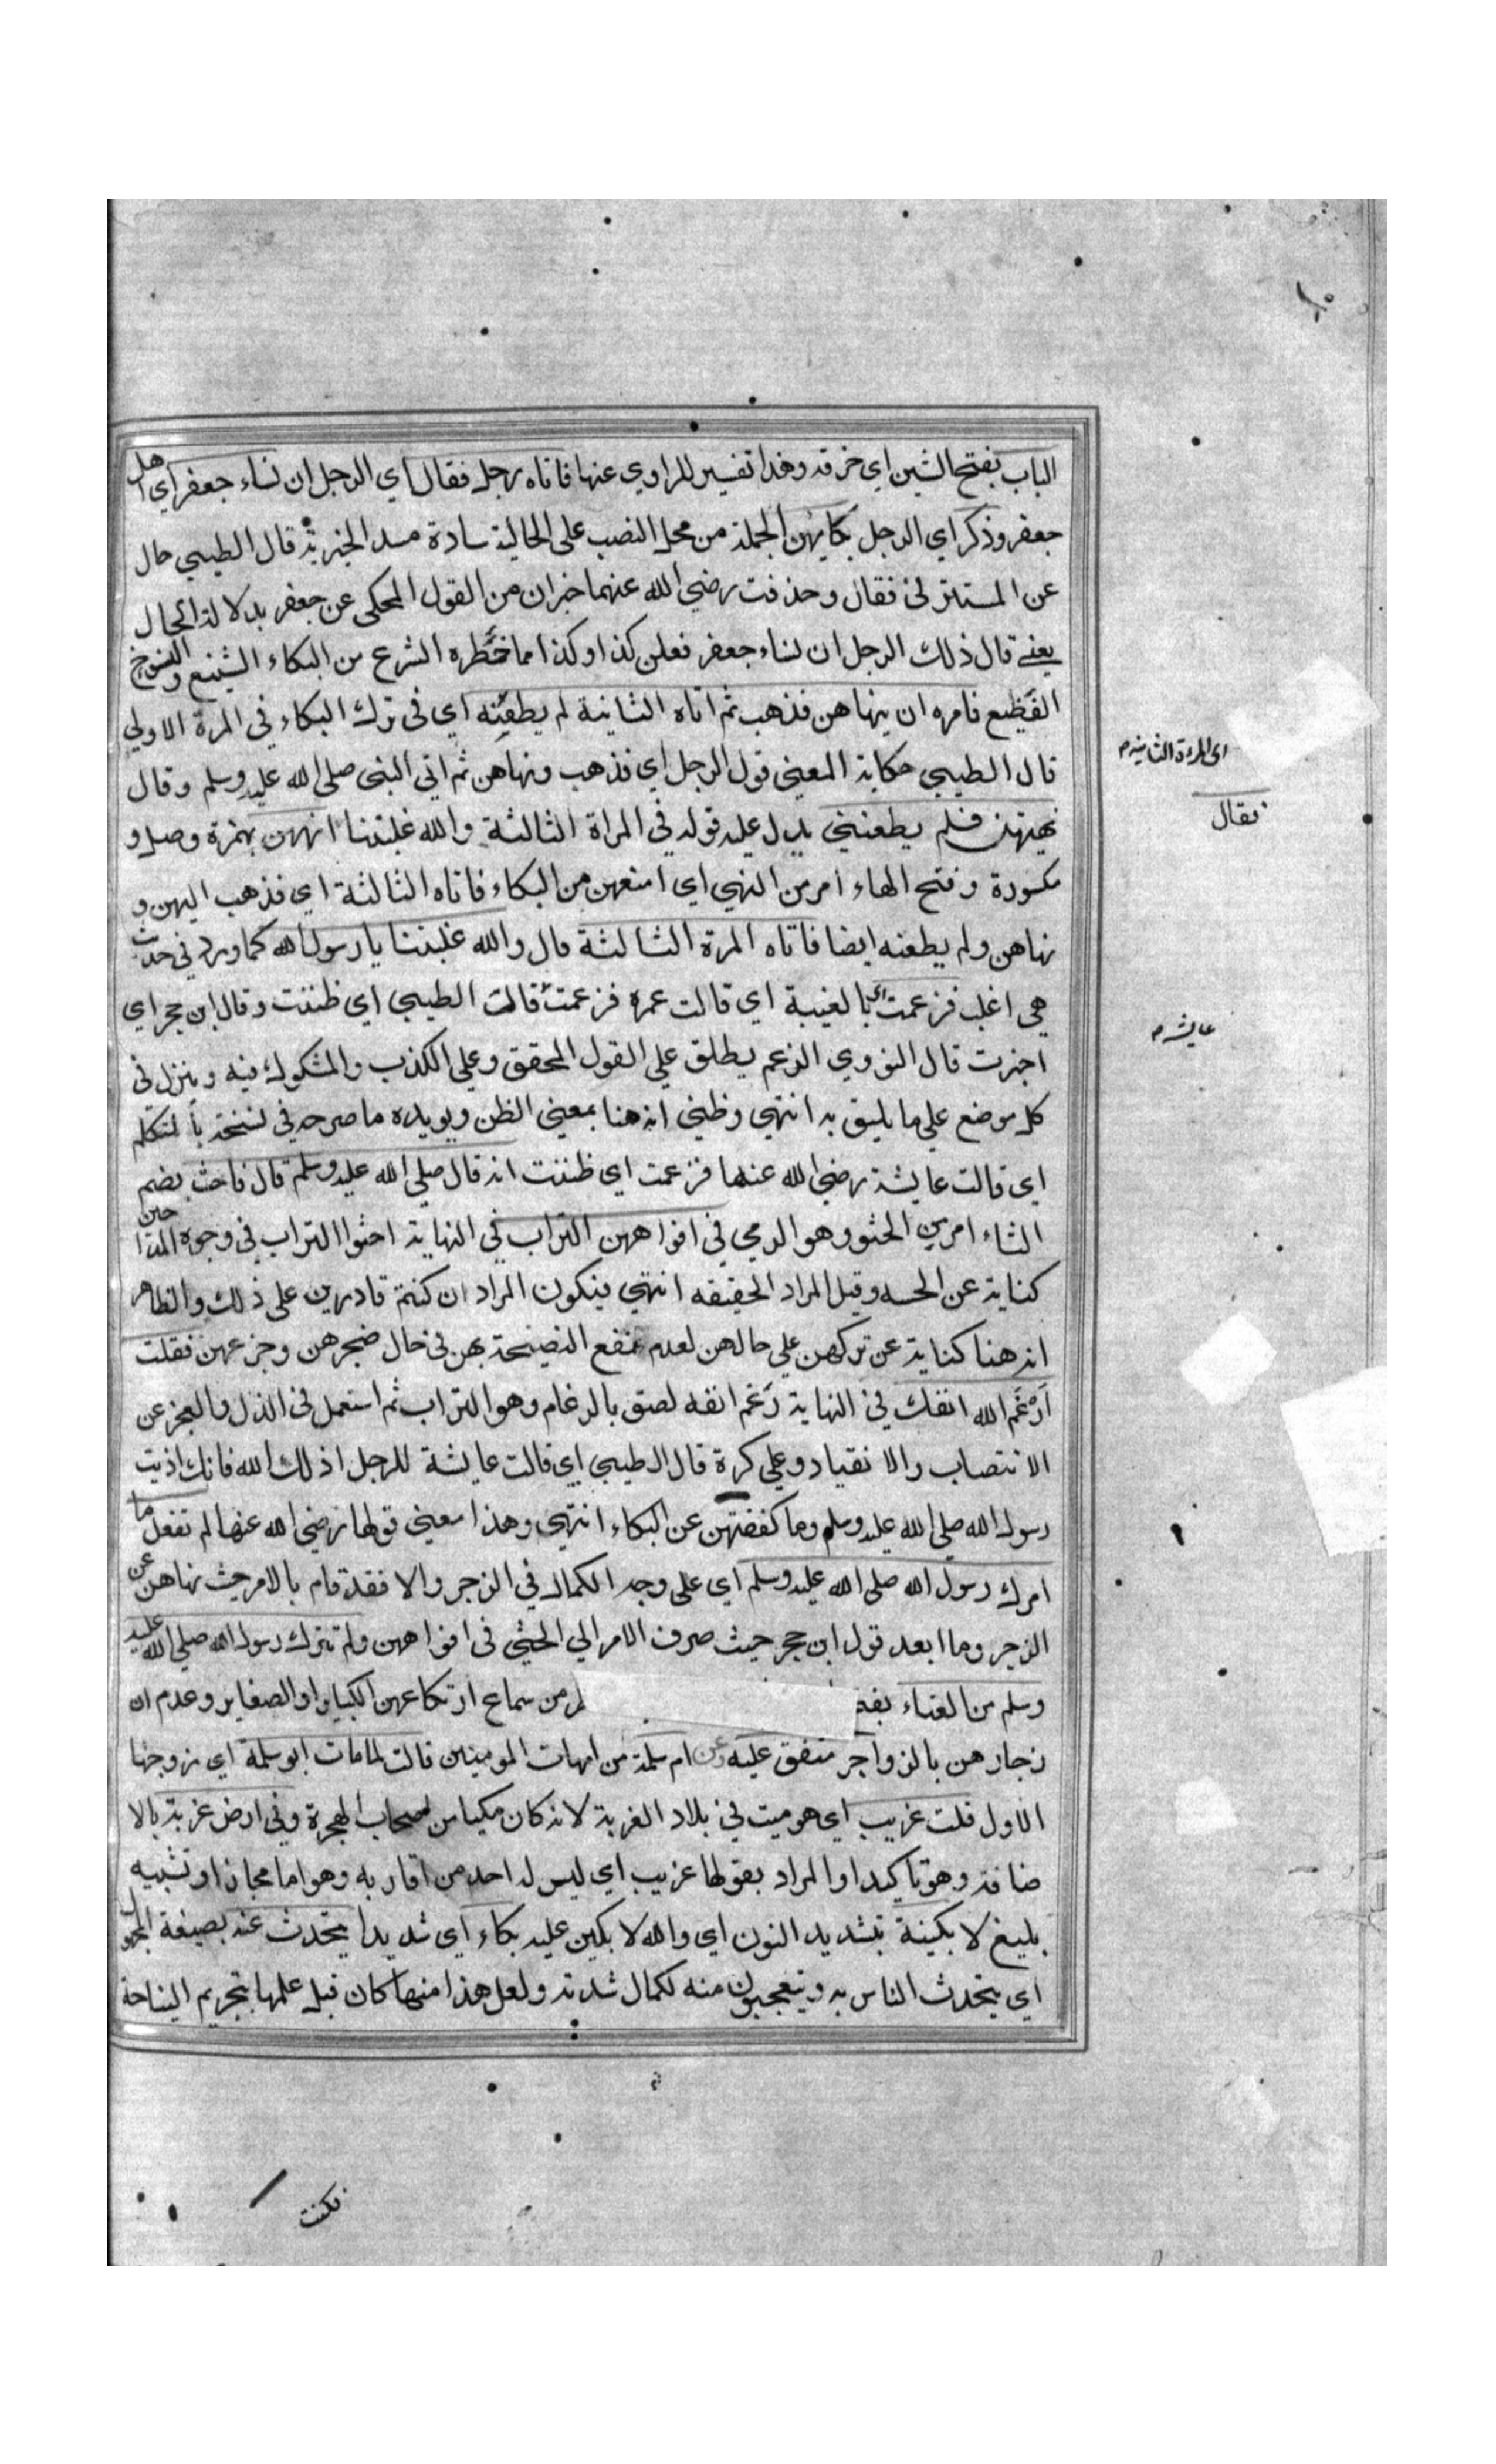 الباب بفتح الشين اي خرقه وهذا تفسير للراوي عنها فاتاه رجل فقال اي الرجل ان نساء جعفر اي اهل
جعفر وذكر اي الرجل بكايهن الجملة من محل النصب على الحالية سادة مسد الخبرية قال الطيبي حال
عن المستتر في فقال وحذفت رضي الله عنهما خبر ان من القول المحكي عن جعفر بدلالة الحال
يعني قال ذلك الرجل ان نساء جعفر فعلن كذا وكذا مما حظره الشرع من البكاء الشنيع والنوح
الفظيع فامره ان ينهاهن فذهب ثم اتاه الثانية لم يطعنه اي في ترك البكاء في المرة الاولي
اي المرءة الثانية م
قال الطيبي حكاية المعنى قول الرجل اي فذهب ونهاهن ثم اتى النبى صلى الله عليه وسلم وقال
فقال
نهيتهن فلم يطعنني يدل عليه قوله في المراة الثالثة والله غلبتنا انههن بهمزة وصل و
مكسورة وفتح الهاء امر من النهي اي امنعهن من البكاء فاتاه الثالثة اي فذهب اليهن و
نهاهن ولم يطعنه ايضا فاتاه المرة الثالثة قال والله غلبتنا يا رسول الله كما ورد في حديث
هي اغلب فزعمت اي بالغيبة اي قالت عمرة فزعمت قالت الطيبي اي ظننت وقال ابن حجر اي
عايشه م
اخبرت قال النووي الزعم يطلق علي القول المحقق وعلي الكذب والمشكوك فيه وينزل في
كل موضع علي ما يليق به انتهي وظني انه هنا بمعني الظن ويويده ما صرح في نسخة بالمتكلم
اي قالت عايشة رضي الله عنها فزعمت اي ظننت انه قال صلي الله عليه وسلم قال فاحث بضم
الثاء امر من الحثو وهو الرمي في افواههن التراب في النهاية احثوا التراب في وجوه المداحين
كناية عن الخيبة وقيل المراد الحقيقه انتهي فيكون المراد ان كنتم قادرين على ذلك والظاهر
انه هنا كناية عن تركهن علي حالهن لعدم نفع النصيحة بهن في حال ضجرهن وجزعهن فقلت
اَرْغَم الله انفك في النهاية رَغم انفه لصق بالرغام وهو التراب ثم استعمل في الذل والعجز عن
الانتصاب والانقياد وعلي كرة قال الطيبي اي قالت عايشة للرجل اذلك الله فانك اذيت
رسول الله صلي الله عليه وسلم وما كففتهن عن البكاء انتهي وهذا معني قولها رضي الله عنها لم تفعل ما
امرك رسول الله صلى الله عليه وسلم اي على وجه الكمال في الزجر والا فقد قام بالامر حيث نهاهن عن
الزجر وما ابعد قول ابن حجر حيث صرف الامر الي الحثي في افواههن ولم تترك رسول الله صلي الله عليه
وسلم من العناء بفتح من سماع ارتكاعهن الكباير او الصغاير وعدم ان
زجارهن بالزواجر متفق عليه وعن ام سلمة من امهات المومنين قالت لما مات ابو سلمة اي زوجها
الاول قلت غريب اي هو ميت في بلاد الغربة لانه كان مكيا من اصحاب الهجرة وفي ارض غربة بالا
ضافة وهو تاكيد او المراد بقولها غريب اي ليس له احد من اقاربه وهو اما مجاز او تشبيه
بليغ لابكينة بتشديد النون اي والله لابكين عليه بكاء اي شديدا يتحدث عنه بصيغة المجهول
اي يتحدث الناس به ويتعجبون منه لكمال شدته ولعل هذا منها كان قبل علمها بتحريم النياحة
فكنت